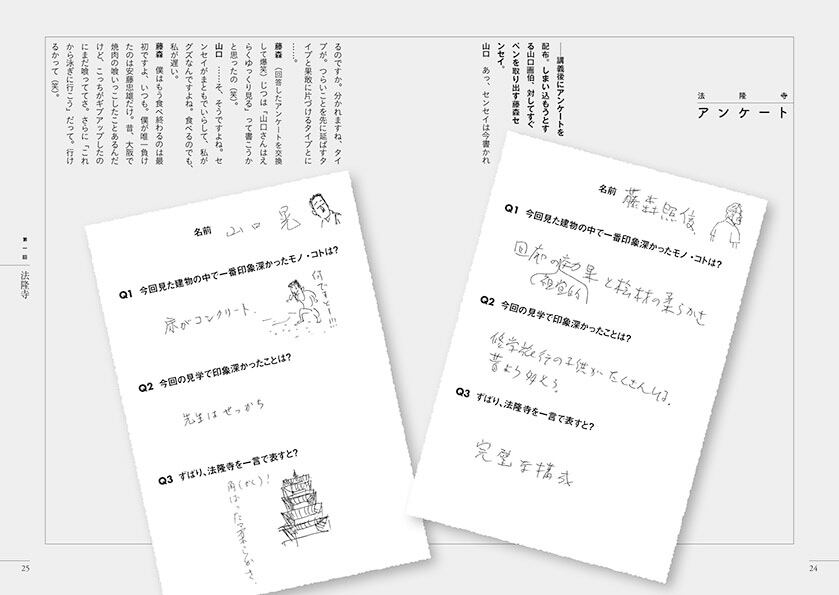 法隆寺
アンケート
――講義後にアンケートを
配布。しまい込もうとす
る山口画伯、対してすぐ
ペンを取り出す藤森セ
ンセイ。
山口　あっ、センセイは今書かれ
るのですか。分かれますね、タイ
プが。つらいことを先に延ばすタ
イプと果敢に片づけるタイプとに
……。
藤森　（回答したアンケートを交換
して爆笑）じつは「山口さんはえ
らくゆっくり見る」って書こうか
と思ったの（笑）。
山口　……そ、そうですよね。セ
ンセイがまともでいらして、私が
グズなんですよね。食べるのでも、
私が遅い。
藤森　僕はもう食べ終わるのは最
初ですよ、いつも。僕が唯一負け
たのは安藤忠雄だけ。昔、大阪で
焼肉の喰いっこしたことあるんだ
けど、こっちがギブアップしたの
にまだ喰っててさ。さらに「これ
から泳ぎに行こう」だって。行け
るかって（笑）。
名前　藤森照信
Q1 今回見た建物の中で一番印象深かったモノ・コトは?
回廊の効果と桧材の柔らかさ
(視覚的)
Q2 今回の見学で印象深かったことは?
修学旅行の子供がたくさんいる。
昔より多そう。
Q3 ずばり、法隆寺を一言で表すと?
完璧な構成
名前　山口晃
Q1 今回見た建物の中で一番印象深かったモノ・コトは?
扉がコンクリート.
何ですとー!!!
Q2 今回の見学で印象深かったことは?
先生はせっかち
Q3 ずばり、法隆寺を一言で表すと?
角(かく)!
角ばった柔らかさ.
第一回　法隆寺
25
24